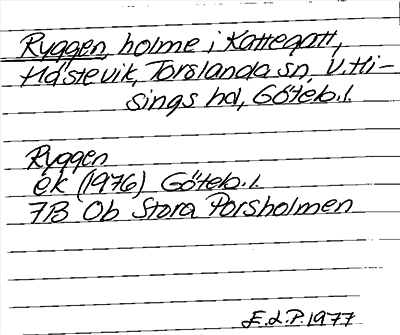 Ryggen, holme i Kattegatt,
Hästevik, Torslanda sn, V. Hi-
sings hd, Göteb. l.
Ryggen
ek (1976) Göteb. l.
7B 0b Stora Porsholmen
E.L.P. 1977